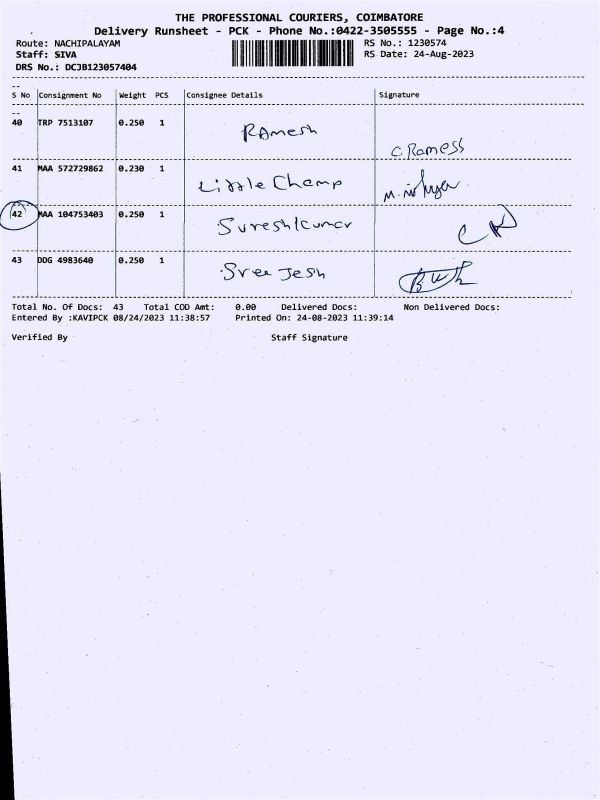 THE PROFESSIONAL COURIERS, COIMBATORE
Delivery Runsheet - PCK - Phone No.:0422-3505555 - Page No.:4
Route: NACHIPALAYAM RS No.: 1230574
Staff: SIVA RS Date: 24-Aug-2023
DRS No.: DCJB123057404
S No Consignment No Weight PCS Consignee Details Signature
40 TRP 7513107 0.250 1 RAmesh C Ramess
41 MAA 572729862 0.230 1 Little Champ
42 MAA 104753403 0.250 1 Sureshkumar
43 DDG 4983640 0.250 1 Sree Jesh
Total No. Of Docs: 43 Total COD Amt: 0.00 Delivered Docs: Non Delivered Docs:
Entered By :KAVIPCK 08/24/2023 11:38:57 Printed On: 24-08-2023 11:39:14
Verified By Staff Signature